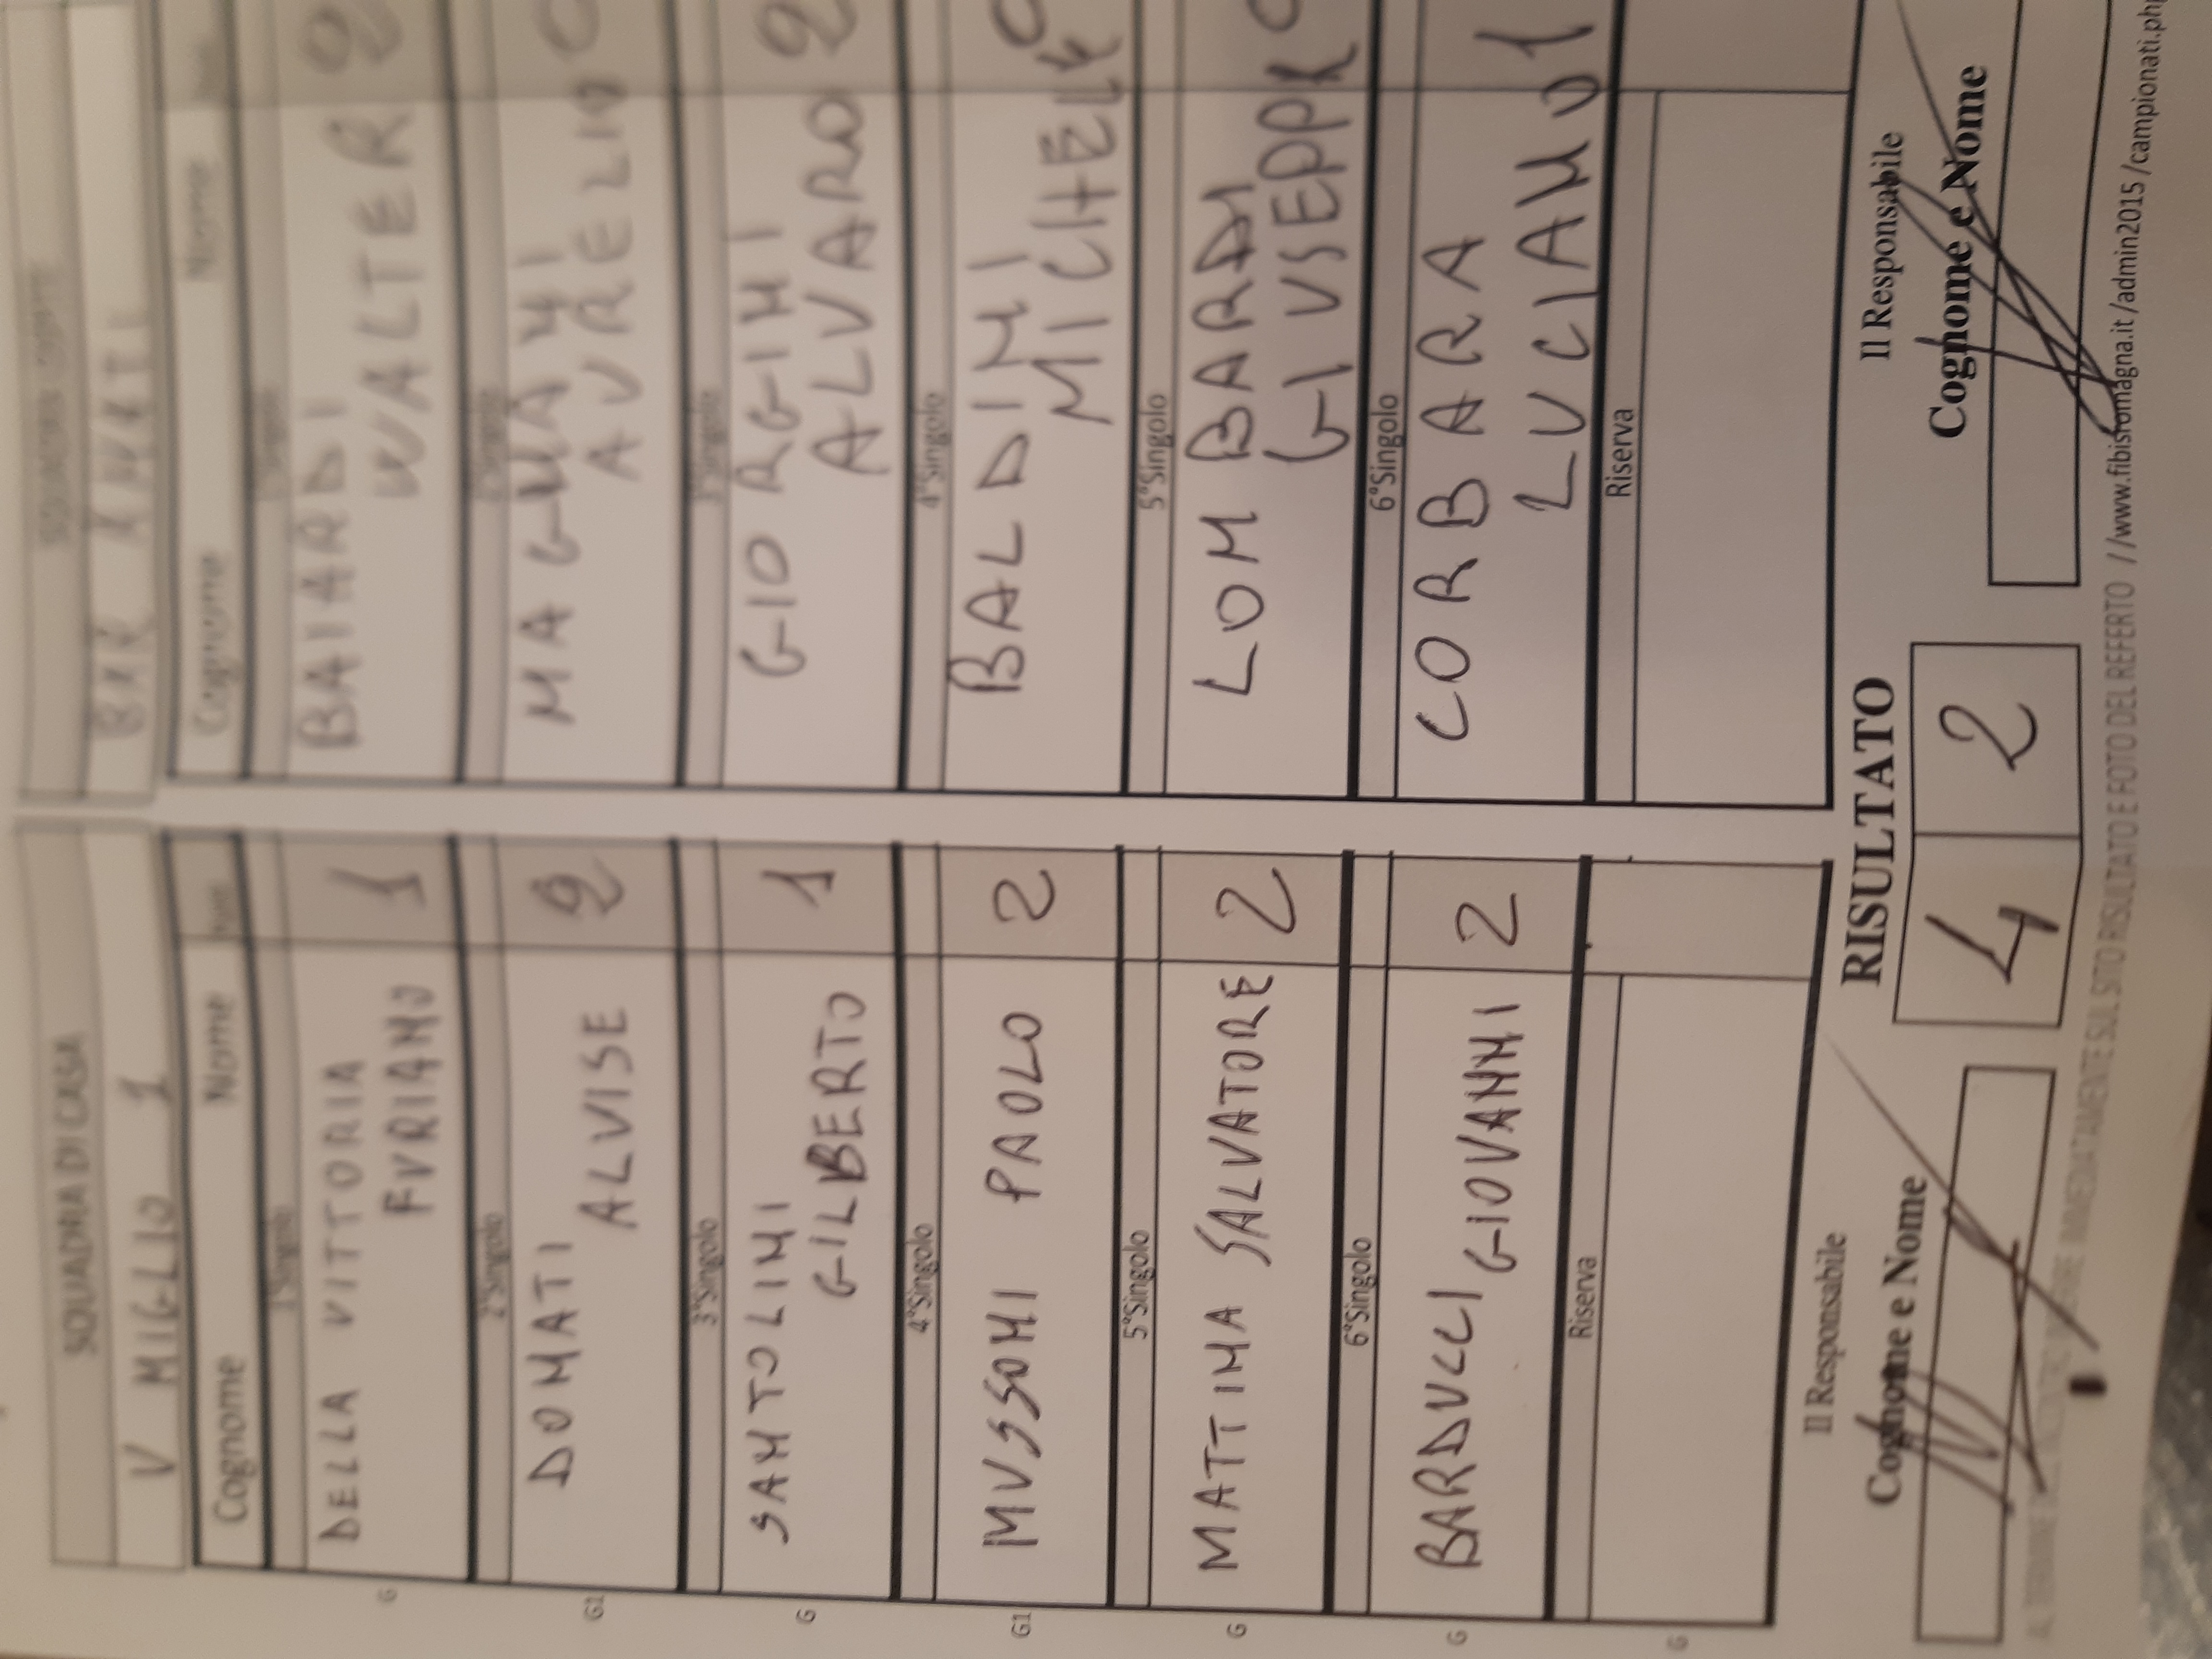 SQUADRA DI CASA
V MIGLIO 1
Cognome Nome
1°Singolo
DELLA VITTORIA
FURIANO 1
G
2°Singolo
DONATI
ALVISE 2
G1
3°Singolo
SANTOLINI
GILBERTO 1
G
4°Singolo
MUSSONI PAOLO 2
G1
5°Singolo
MATTINA SALVATORE 2
G
6°Singolo
BARDUCCI GIOVANNI 2
G
Riserva
G
Il Responsabile
Cognome e Nome
SQUADRA OSPITE
BAR
Cognome Nome
1°Singolo
BAIARDI
WALTER 2
2°Singolo
MAGNANI
AURELIO 0
3°Singolo
GIORGINI
ALVARO 2
4°Singolo
BALDINI
MICHELE 0
5°Singolo
LOMBARDI
GIUSEPPE 0
6°Singolo
CORBARA
LUCIANO 1
Riserva
RISULTATO
4 2
Il Responsabile
Cognome e Nome
AL TERMINE IMMEDIATAMENTE SUL SITO RISULTATO E FOTO DEL REFERTO //www.fibisromagna.it/admin2015/campionati.php